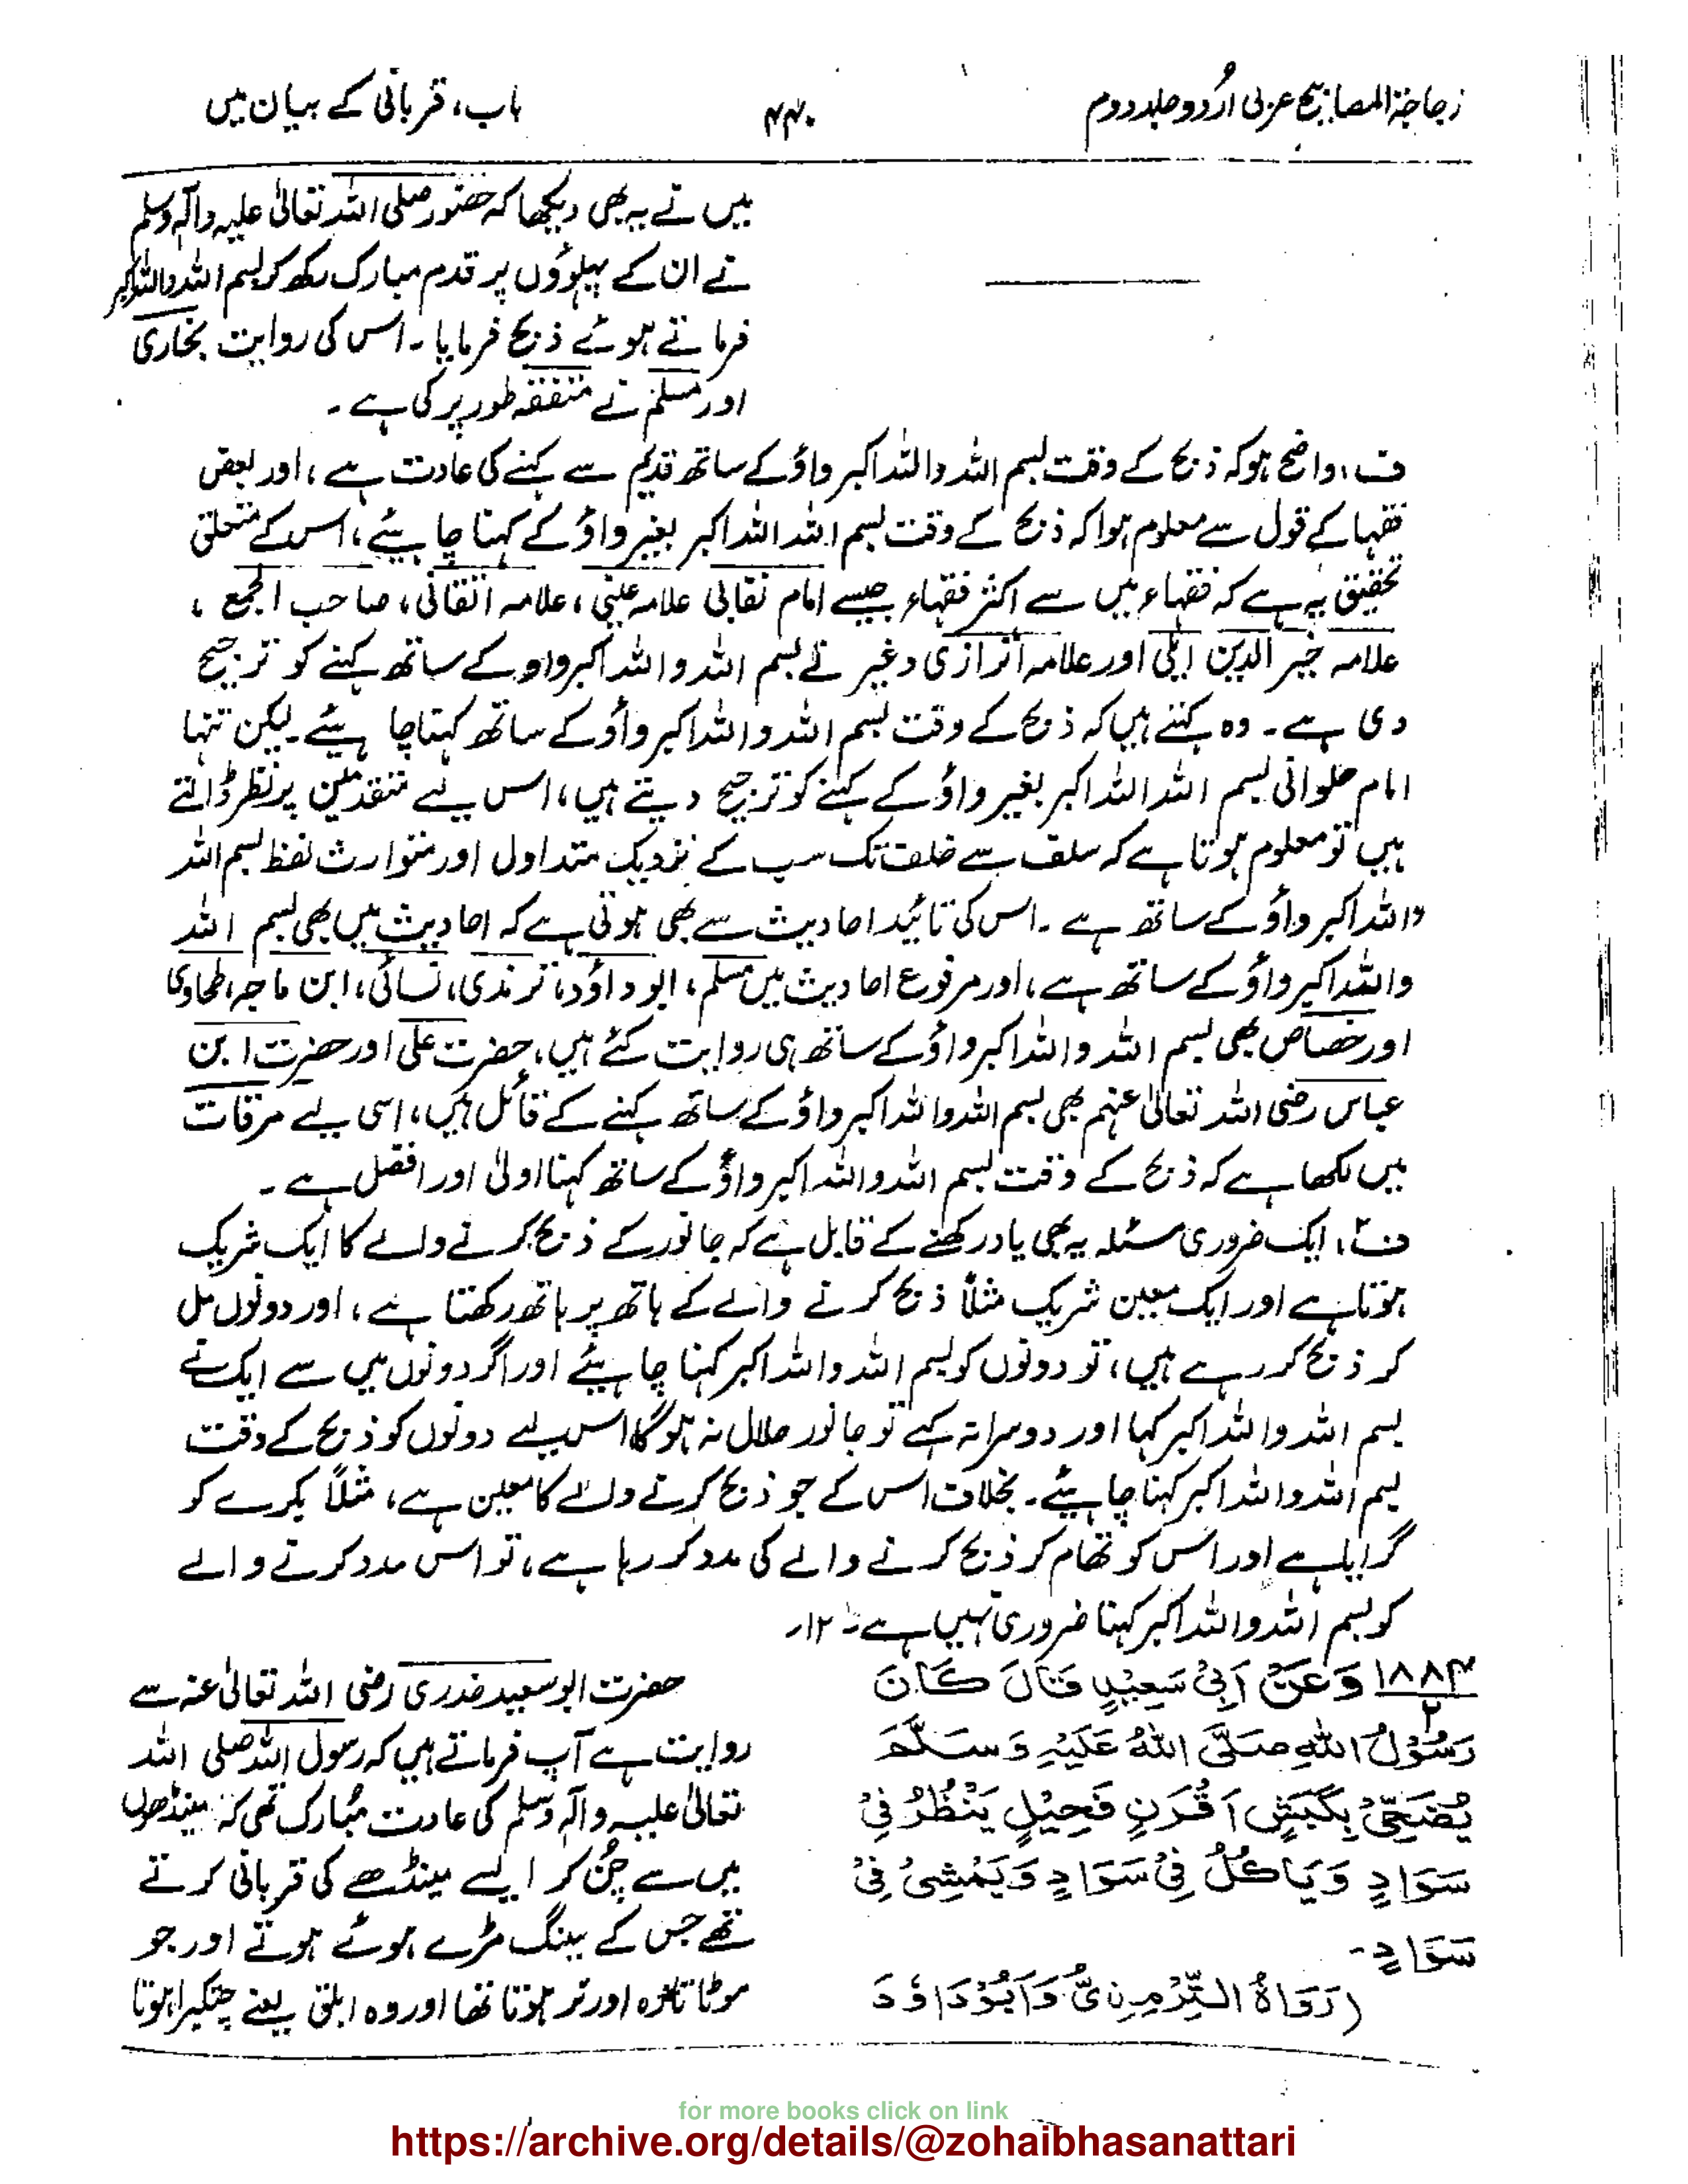 زجاجۃ المصابیح عربی اُردو جلد دوم
۴۴۰
باب، قربانی کے بیان میں
میں نے یہ بھی دیکھا کہ حضور صلی اللہ تعالیٰ علیہ وآلہٖ وسلم
نے ان کے پہلوؤں پر قدم مبارک رکھ کر بسم اللہ واللہ اکبر
فرماتے ہوئے ذبح فرمایا۔ اس کی روایت بخاری
اور مسلم نے متفقہ طور پر کی ہے۔
ف، واضح ہو کہ ذبح کے وقت بسم اللہ واللہ اکبر واؤ کے ساتھ قدیم سے کہنے کی عادت ہے، اور بعض
فقہا کے قول سے معلوم ہوا کہ ذبح کے وقت بسم اللہ اللہ اکبر بغیر واؤ کے کہنا چاہیئے، اس کے متعلق
تحقیق یہ ہے کہ فقہاء میں سے اکثر فقہاء جیسے امام علامہ عینی، علامہ اتقانی، صاحب المجمع،
علامہ خیر الدین اور علامہ اترازی وغیر نے بسم اللہ واللہ اکبر واو کے ساتھ کہنے کو ترجیح
دی ہے۔ وہ کہتے ہیں کہ ذبح کے وقت بسم اللہ واللہ اکبر واؤ کے ساتھ کہنا چاہیئے۔ لیکن تنہا
امام حلوانی بسم اللہ اللہ اکبر بغیر واؤ کے کہنے کو ترجیح دیتے ہیں، اس لیے متقدمین پر نظر ڈالتے
ہیں تو معلوم ہوتا ہے کہ سلف سے خلف تک سب کے نزدیک متداول اور متوارث لفظ بسم اللہ
واللہ اکبر واؤ کے ساتھ ہے۔ اس کی تائید احادیث سے بھی ہوتی ہے کہ احادیث میں بھی بسم اللہ
واللہ اکبر واؤ کے ساتھ ہے، اور مرفوع احادیث میں مسلم، ابوداؤد، ترمذی، نسائی، ابن ماجہ، طحاوی
اور خصاص بھی بسم اللہ واللہ اکبر واؤ کے ساتھ ہی روایت کئے ہیں، حضرت علی اور حضرت ابن
عباس رضی اللہ تعالیٰ عنہم بھی بسم اللہ واللہ اکبر واؤ کے ساتھ کہنے کے قائل ہیں، اسی لیے مرقات
میں لکھا ہے کہ ذبح کے وقت بسم اللہ واللہ اکبر واؤ کے ساتھ کہنا اولیٰ اور افضل ہے۔
ف۲، ایک ضروری مسئلہ یہ بھی یاد رکھنے کے قابل ہے کہ جانور کے ذبح کرنے والے کا ایک شریک
ہوتا ہے اور ایک معین شریک مثلاً ذبح کرنے والے کے ہاتھ پر ہاتھ رکھتا ہے، اور دونوں مل
کر ذبح کر رہے ہیں، تو دونوں کو بسم اللہ واللہ اکبر کہنا چاہیئے اور اگر دونوں میں سے ایک نے
بسم اللہ واللہ اکبر کہا اور دوسرا نہ کہے تو جانور حلال نہ ہوگا اس لیے دونوں کو ذبح کے وقت
بسم اللہ واللہ اکبر کہنا چاہیئے۔ بخلاف اس کے جو ذبح کرنے والے کا معین ہے، مثلاً بکرے کو
گرایا ہے اور اس کو تھام کر ذبح کرنے والے کی مدد کر رہا ہے، تو اس مدد کرنے والے
کو بسم اللہ واللہ اکبر کہنا ضروری نہیں ہے۔ ۱۲۔
۱۸۸۴ وَعَنْ اَبِیْ سَعِیْدٍ قَالَ کَانَ
۲
رَسُوْلُ اللہِ صَلَّی اللہُ عَلَیْہِ وَسَلَّمَ
یُضَحِّیْ بِکَبْشٍ اَقْرَنٍ فَحِیْلٍ یَنْظُرُ فِیْ
سَوَادٍ وَیَاکُلُ فِیْ سَوَادٍ وَیَمْشِیْ فِیْ
سَوَادٍ۔
(رَوَاہُ التِّرْمِذِیُّ وَاَبُوْدَاؤدَ
حضرت ابوسعید خدری رضی اللہ تعالیٰ عنہ سے
روایت ہے آپ فرماتے ہیں کہ رسول اللہ صلی اللہ
تعالیٰ علیہ وآلہٖ وسلم کی عادت مُبارک تھی کہ مینڈھوں
میں سے چُن کر ایسے مینڈھے کی قربانی کرتے
تھے جس کے سینگ مڑے ہوئے ہوتے اور جو
موٹا تازہ اور نر ہوتا تھا اور وہ ابلق یعنے چتکبرا ہوتا
for more books click on link
https://archive.org/details/@zohaibhasanattari